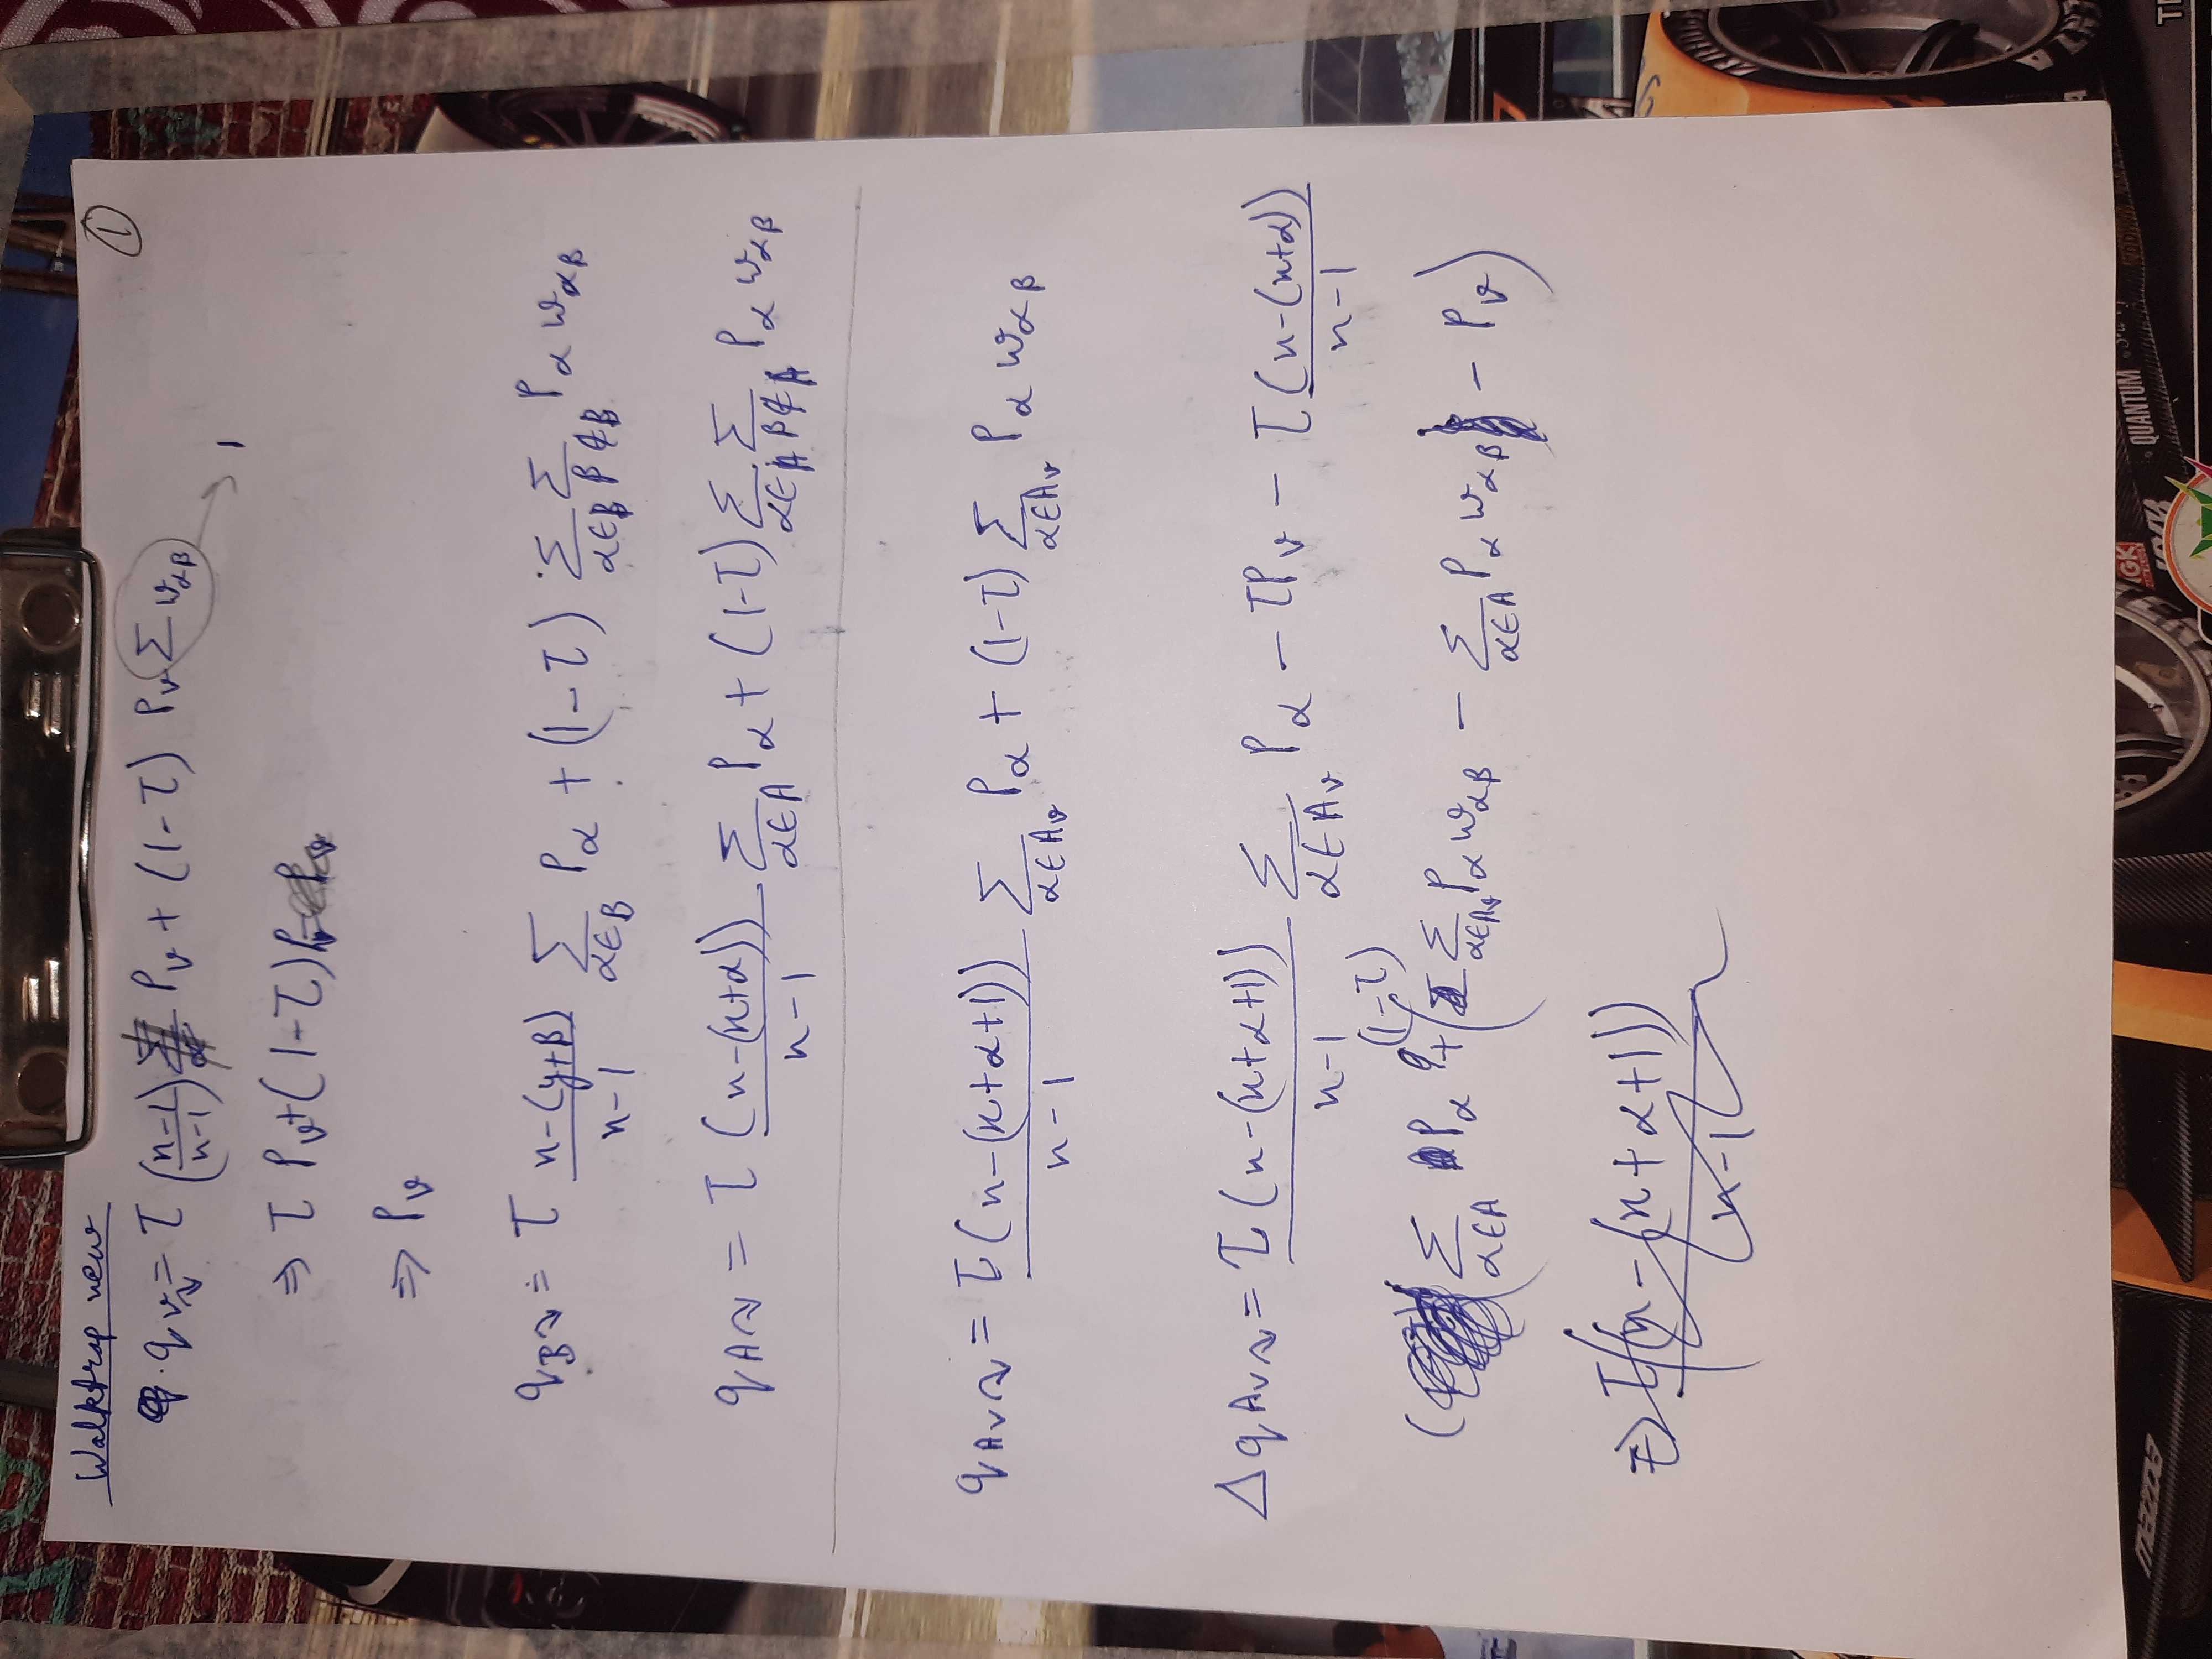 Walktrap new
①
q_v↷ = τ (n-1 / n-1) P_v + (1-τ) P_v Σ w_αβ → 1
⇒ τ P_v + (1-τ) P_v
⇒ P_v
q_B↷ = τ n-(y+β) / n-1 Σ_{α∈B} P_α + (1-τ) Σ_{α∈B} Σ_{β∉B} P_α w_αβ
q_A↷ = τ (n-(x+α)) / n-1 Σ_{α∈A} P_α + (1-τ) Σ_{α∈A} Σ_{β∉A} P_α w_αβ
q_Av↷ = τ(n-(x+α+1)) / n-1 Σ_{α∈A_v} P_α + (1-τ) Σ_{α∈A_v} P_α w_αβ
Δq_Av↷ = τ(n-(x+α+1)) / n-1 Σ_{α∈A_v} P_α - τP_v - τ(n-(x+α)) / n-1
(Σ_{α∈A} P_α + (1-τ)(Σ_{α∈A_v} P_α w_αβ - Σ_{α∈A} P_α w_αβ - P_v)
⇒ τ(n-(x+α+1)) / n-1
mazda
NGK
QUANTUM